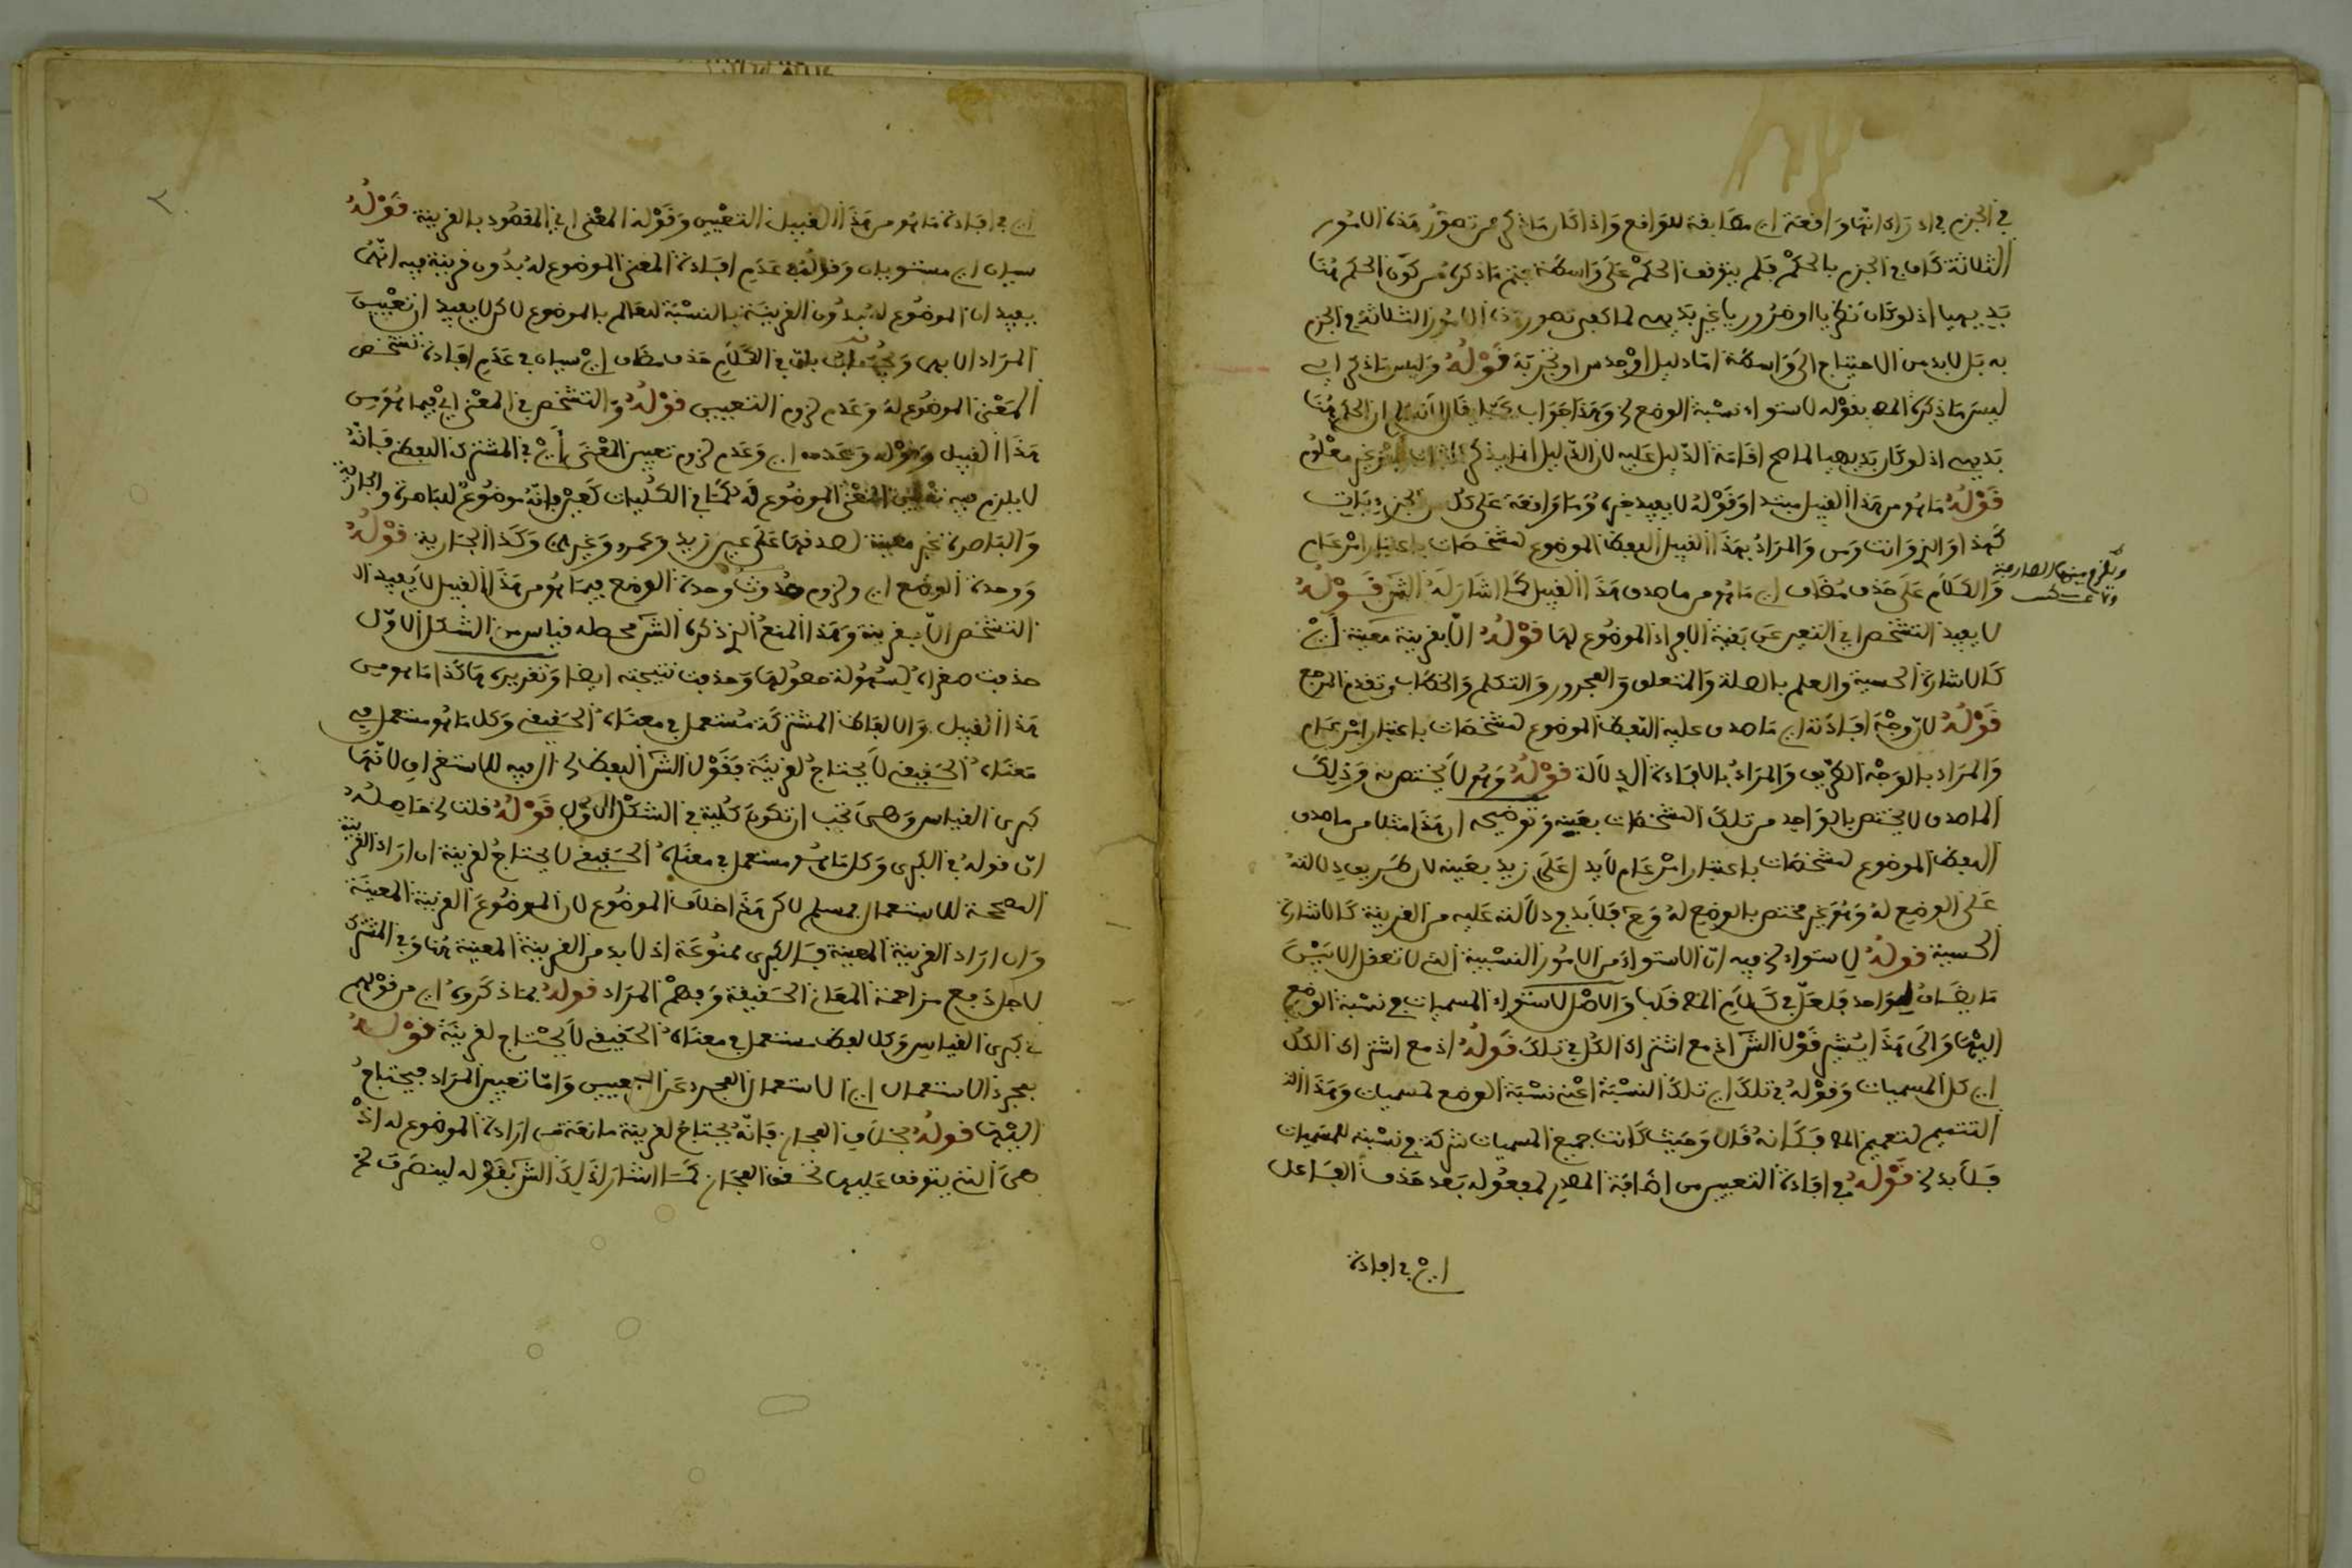 في الجزم في ادراك انها واقعة اي مطابقة للواقع واذا كان ما ذكر من تصور هذه الامور
الثلاثة كاف في الجزم بالحكم فلم يتوقف الحكم على واسطة فتم ما ذكره من كون الحكم هنا
بديهيا اذ لو كان نظريا او ضروريا غير بديهي لما كفى تصور هذه الامور الثلاثة في الجزم
به بل لابد من الاحتياج الى واسطة اما دليل او حدس او تجربة قوله وليس ما ذكر اي
ليس ما ذكره المص بقوله لاستواء نسبة الوضع الخ وهذا جواب عما قال ان الحكم هنا
بديهي اذ لو كان بديهيا لما صح اقامة الدليل عليه لان الدليل انما يذكر غير معلوم
قوله ما هو من هذا القبيل مبتدا وقوله لا يفيد خبره وما واقعة على كل الجزءيات
كهذا والذي وانت ومن والمراد بهذا القبيل اللفظ الموضوع لمشخصات باعتبار امر عام
والكلام على حذف مضاف اي ما هو من ماصدق هذا القبيل كما اشار له الش قوله
لا يفيد التشخص اي التعبير عن بقية الافراد الموضوع لها قوله الا بقرينة معينة اي
كالاشارة الحسية والعلم بالصلة والمتعلق والمجرور والتكلم والخطاب وتقدم المرجع
قوله لان وجه افادته اي ما صدق عليه اللفظ الموضوع لمشخصات باعتبار امر عام
والمراد بالوجه الطريق والمراد بالافادة الدلالة قوله وهو لا يختص به وذلك
الماصدق لا يختص بالواحد من تلك المشخصات بعينه وتوضيحه ان هذا مثلا من ماصدق
اللفظ الموضوع لمشخصات باعتبار امر عام لا يدل على زيد بعينه لان طريق دلالته
على الوضع له وهو غير مختص بالوضع له وح فلابد في دلالته عليه من القرينة كالاشارة
الحسية قوله لاستواء الخ فيه ان الاستواء من الامور النسبية التي لا تعقل الا بين
ما يضاف لواحد فلعل في كلام المص قلبا والاصل لاستواء المسميات في نسبة الوضع
اليها والى هذا يشير قول الش اذ مع اشتراك الكل في تلك قوله اذ مع اشتراك الكل
اي كل المسميات وقوله في تلك اي تلك النسبة اعني نسبة الوضع لمسميات وهذا
التتميم لتعميم المص فكانه قال وحيث كانت جميع المسميات شركة في نسبته للمسميات
فلابد الخ قوله في افادة التعيين من اضافة المصدر لمفعوله بعد حذف الفاعل
اي في افادة
٢
اي في افادة ما هو من هذا القبيل التعيين وقوله المعنى اي المقصود بالقرينة قوله
سيان اي مستويان وقوله في عدم افادة المعنى الموضوع له بدون قرينة فيه انهما
يفيدان الموضوع له بدون القرينة بالنسبة للعالم بالموضوع لا كن لا يفيد ان تعيين
المراد الا بها في الكلام حذف مضاف اي سيان في عدم افادة تشخص
المعنى الموضوع له وعدم لزوم التعيين قوله والتشخص في المعنى اي فيما هو من
هذا القبيل وقوله وعدمه اي وعدم لزوم تعيين المعنى اي في المشترك اللفظي فانه
لا يلزم فيه تعيين المعنى الموضوع له كما في الكليات كعين فانه موضوع للباصرة والجارية
والباصرة غير معينة لصدقها على عين زيد وعمرو وغيرهما وكذا الجارية قوله
ووحدة الوضع اي ولزوم حدوث وحدة الوضع فيما هو من هذا القبيل لا يفيد الا
التشخص الا بقرينة وهذا المنع الذي ذكره الش محطه قياس من الشكل الاول
حذفت صغراه لسهولة حصولها وحذفت نتيجته ايضا وتقريره هاكذا ما هو من
هذا القبيل والالفاظ المشتركة مستعمل في معناه الحقيقي وكل ما هو مستعمل في
معناه الحقيقي لا يحتاج لقرينة فقول الش اللفظ الخ ال فيه للاستغراق لانها
كبرى القياس وهي يجب ان تكون كلية في الشكل الاول قوله قلت الخ حاصله
ان قوله في الكبرى وكل ما هو مستعمل في معناه الحقيقي لا يحتاج لقرينة ان اراد القرينة
المصححة للاستعمال مسلم لا كن هذا خلاف الموضوع لان الموضوع القرينة المعينة
وان اراد القرينة المعينة فالكبرى ممنوعة اذ لابد من القرينة المعينة هنا وفي المشترك
لاجل دفع مزاحمة المعان الحقيقية وفهم المراد قوله بما ذكروه اي من قولهم
في كبرى القياس وكل لفظ مستعمل في معناه الحقيقي لا يحتاج لقرينة قوله
بمجرد الاستعمال اي الاستعمال المجرد عن التعيين واما تعيين المراد فيحتاج
اليها قوله بخلاف المجاز فانه يحتاج لقرينة مانعة من ارادة الموضوع له اذ
هي التي يتوقف عليها تحقق المجاز كما اشار لذلك الش بقوله لينصرف الخ